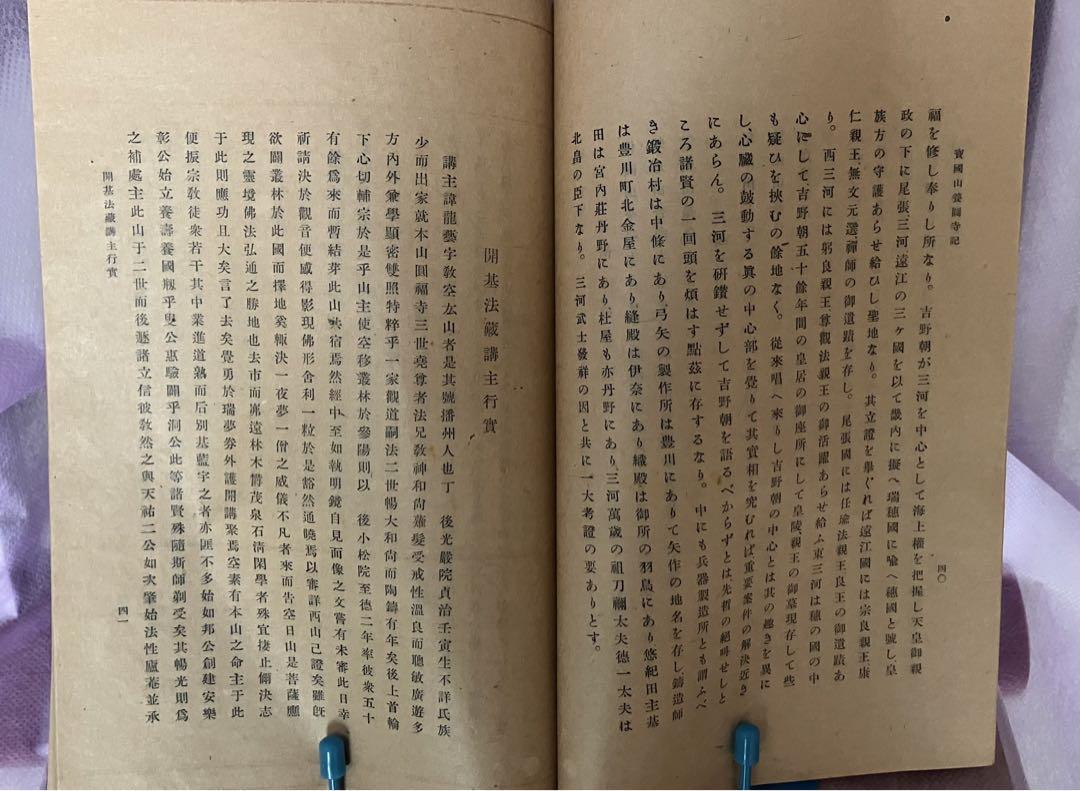 寶國山養國寺記
四〇
福を修し奉りし所なり。吉野朝が三河を中心として海上權を把握し天皇御親
政の下に尾張三河遠江の三ヶ國を以て畿內に擬へ瑞穗國に喩へ穗國と號し皇
族方の守護あらせ給ひし聖地なり。其立證を擧ぐれば遠江國には宗良親王、康
仁親王、無文元選禪師の御遺蹟を存し。尾張國には任瑜法親王良王の御遺蹟あ
り。西三河には躬良親王尊觀法親王の御活躍あらせ給ふ東三河は穗の國の中
心にして吉野朝五十餘年間の皇居の御座所にして皇陵親王の御墓現存して些
も疑ひを挾むの餘地なく。從來唱へ來りし吉野朝の中心とは其の趣きを異に
し、心臟の鼓動する眞の中心部を覺りて其實相を究むれば重要案件の解決近き
にあらん。三河を硏鑽せずして吉野朝を語るべからずとは、先哲の絕呌せしと
ころ諸賢の一回頭を煩はす點茲に存するなり。中にも兵器製造所とも謂ふべ
き鍛冶村は中條にあり、弓矢の製作所は豊川にありて矢作の地名を存し、鑄造師
は豊川町北金屋にあり、縫殿は伊奈にあり織殿は御所の羽鳥にあり悠紀田主基
田は宮內莊丹野にあり杜屋も亦丹野にあり、三河萬歲の祖刀禰太夫德一太夫は
北畠の臣下なり。三河武士發祥の因と共に一大考證の要ありとす。
開基法藏講主行實
講主諱龍藝字敎空厷山者是其號播州人也丁 後光嚴院貞治壬寅生不詳氏族
少而出家就本山圓福寺三世堯尊者法兄敎神和尙薙髮受戒性溫良而聰敏廣遊多
方內外兼學顯密雙照特粹乎一家觀道嗣法二世暢大和尙而陶鑄有年矣後上首輪
下心切輔宗於是乎山主使空移叢林於參陽則以 後小松院至德二年率彼衆五十
有餘爲來而暫結芽此山共宿焉然經中至如執明鏡自見而像之文嘗有未審此日幸
祈請決於觀音便感得影現佛形舍利一粒於是豁然通曉焉以審詳西山己證矣雖旣
欲闢叢林於此國而擇地奚輙決一夜夢一僧之威儀不凡者來而告空日山是菩薩應
現之靈境佛法弘通之勝地也去市而寡遠林木欝茂泉石淸閑學者殊宜捿止倆決志
于此則應功且大矣言了去矣覺勇於瑞夢券外護開講聚焉空素有本山之命主于此
便振宗敎徒衆若干其中業進道熟而后別基藍宇之者亦匪不多始如邦公創建安樂
彰公始立養壽養國剏乎叟公惠驗闢乎洞公此等諸賢殊隨斯師剃受矣其暢光則爲
之補處主此山于二世而後遯諸立信彼敎然之與天祐二公如次肇始法性廬菴並承
開基法藏講主行實
四一